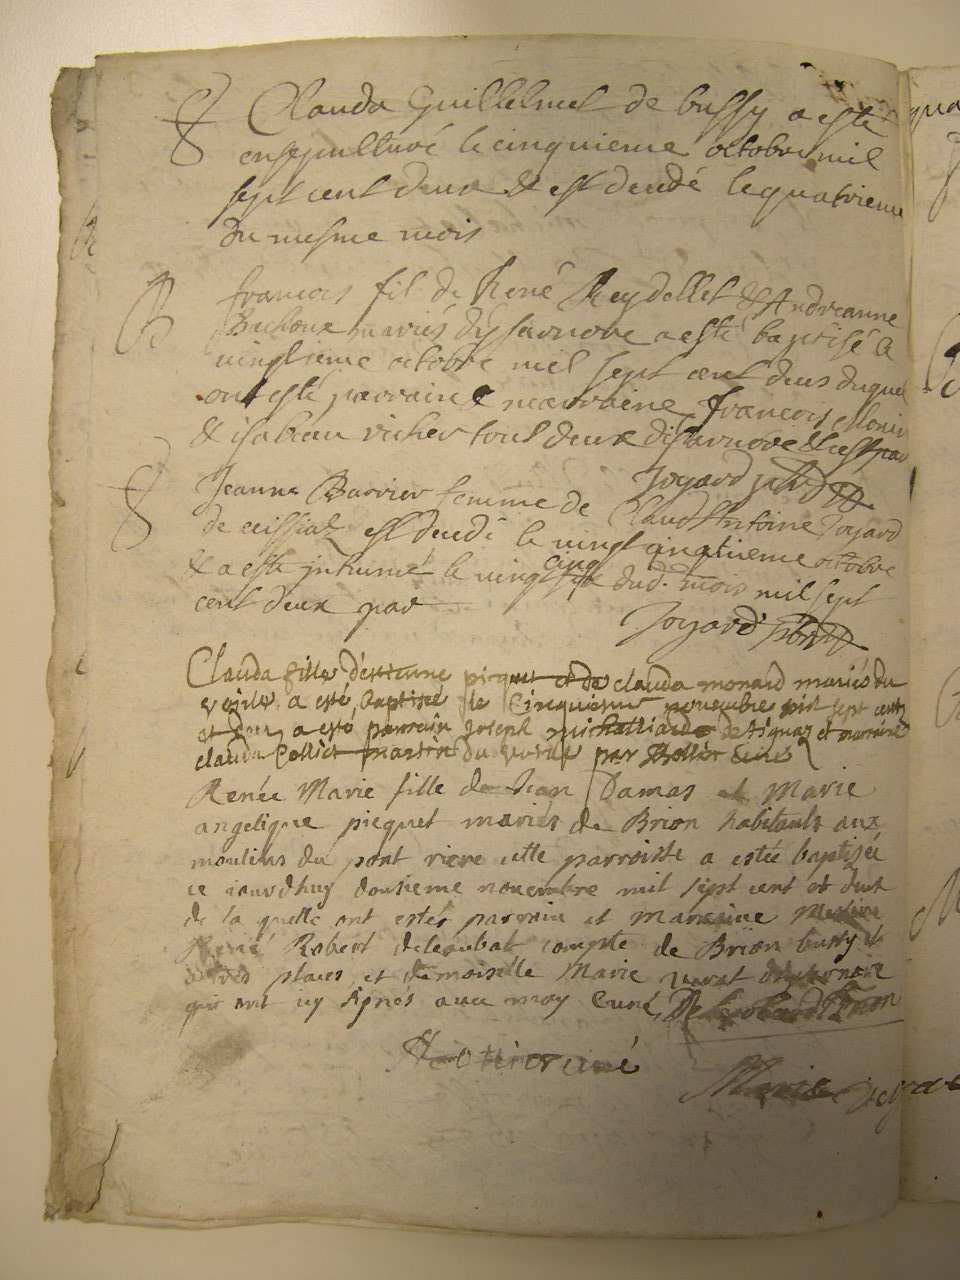 S Clauda Guillelmet de bussy a esté
ensepulturé le cinquieme octobre mil
sept cent deux & est decedé le quatrieme
du mesme mois
B francois fil. de René Reydellet & Andreanne
mariés d'Isarnore a esté baptisé le
vingtieme octobre mil sept cent deus duquel
ont esté parrain & marraine francois
& isabeau richer tout deux d'isarnore & c'est par
Joyard
S Jeanne Barrier femme de Claud Antoine Joyard
de ceissiat est decedé le vingt cinquieme octobre
& a esté inhumé le vingt cinq dud. mois mil sept
cent deux par
Joyard
Clauda fille d'estienne picquet et de clauda monard mariés du
a esté baptisé le cinquiesme novembre mil sept cent
et deux a esté parrain Joseph michalliard de et marraine
clauda Collict du par Curé
Renée Marie fille de Jean Damas et Marie
angelique picquet mariés de Brion habitants aux
moulins du pont riere cette parroiste a estée baptisée
ce iourdhuy dousieme novembre mil sept cent et deux
de la quelle ont estés parrain et marraine Messire
René Robert compte de Brïon bussy et
autres places et damoiselle Marie
qui ont icy signés avec moy Curé,
curé
Marie